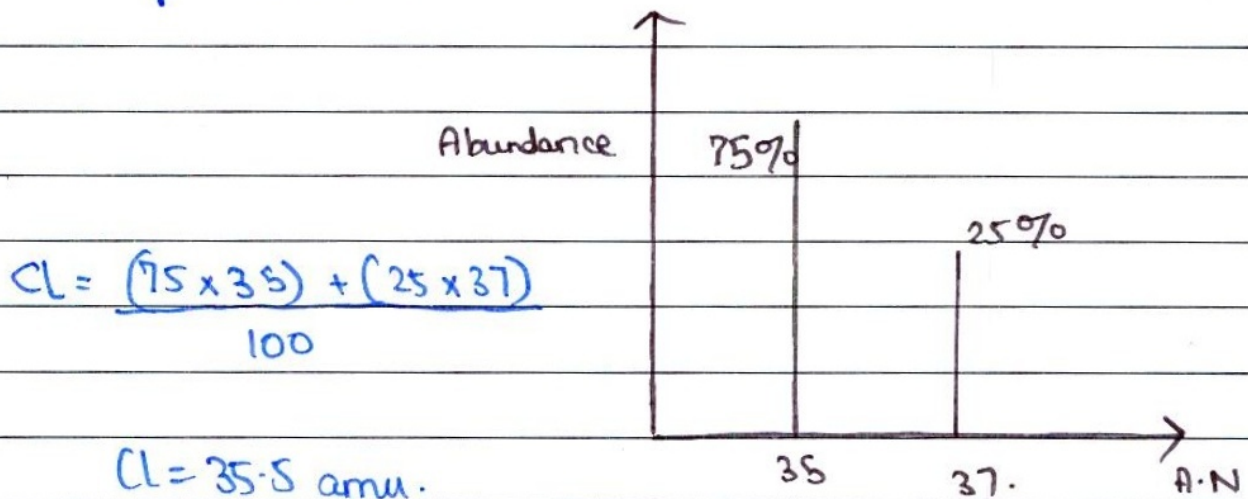 Abundance
75%
25%
CL = (75 x 35) + (25 x 37)
100
CL = 35.5 amu.
35
37.
A.N